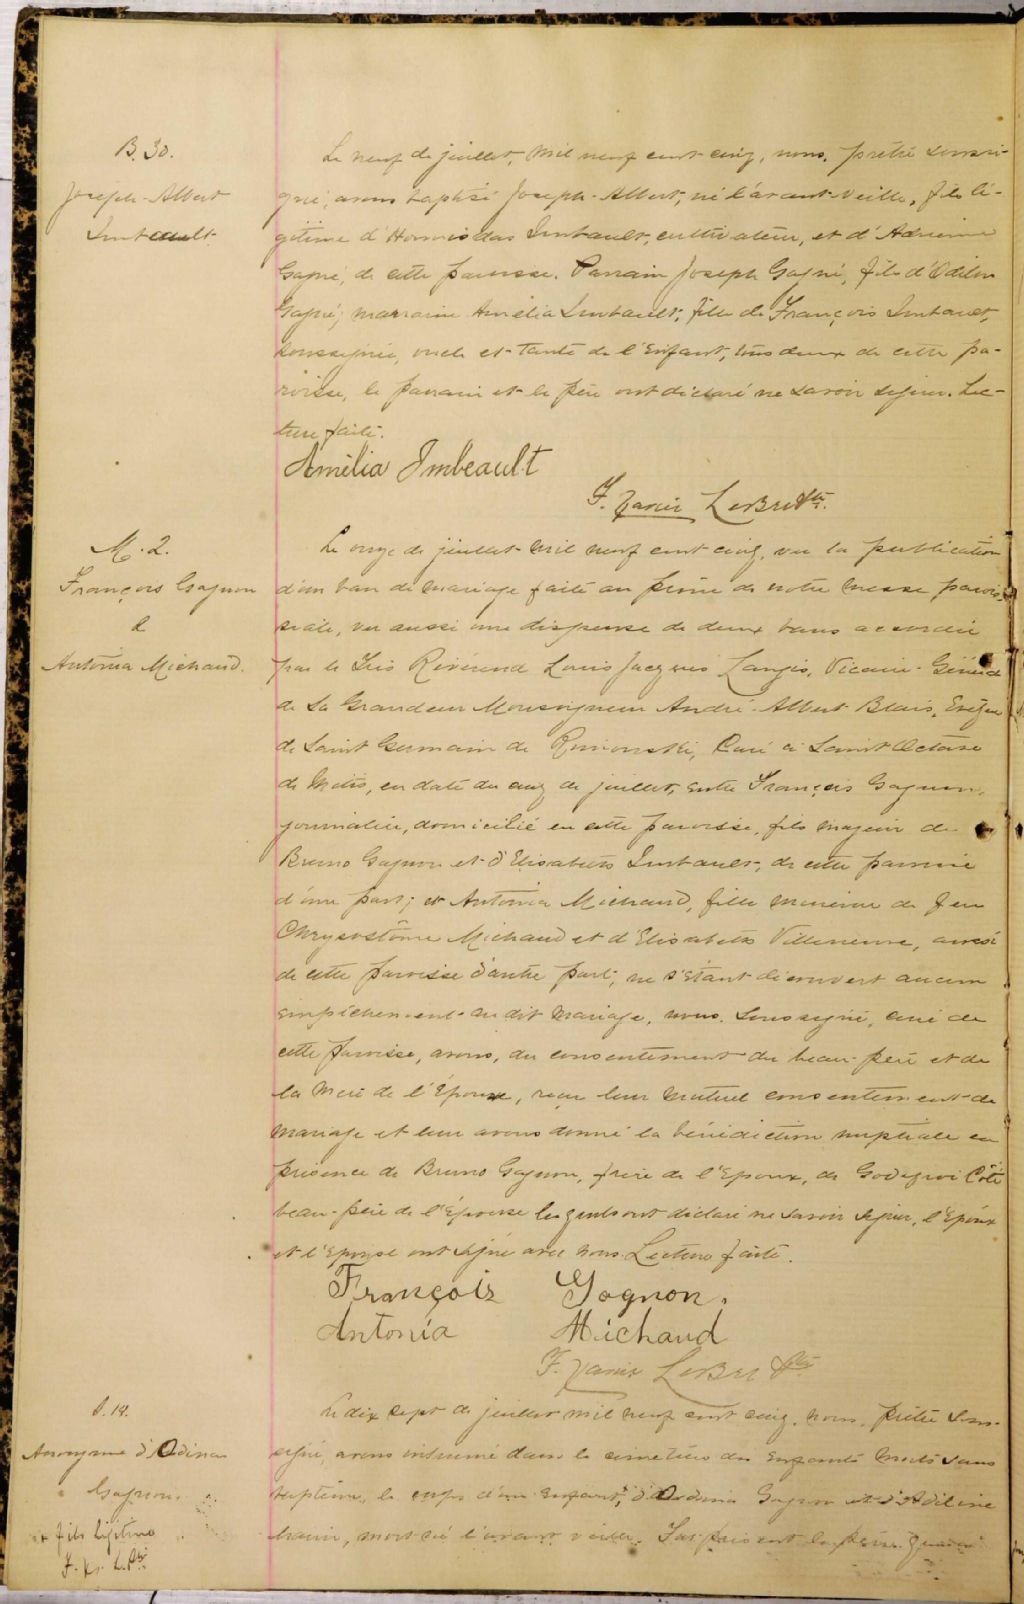 B. 30.
Joseph-Albert
Imbeault
Le neuf de juillet, mil neuf cent cinq, nous, prêtre soussi-
gné, avons baptisé Joseph-Albert, né l'avant-veille, fils lé-
gitime d'Hormisdas Imbault, cultivateur, et d'Adrienne
Gagné, de cette paroisse. Parrain Joseph Gagné, fils d'Odilon
Gagné; marraine Amélia Imbault, fille de François Imbault,
soussignée, oncle et tante de l'enfant, tous deux de cette pa-
roisse, le parrain et le père ont déclaré ne savoir signer. Lec-
ture faite.
Amélia Imbeault
F. Xavier LeBel Ptre.
M. 2.
François Gagnon
&
Antonia Michaud.
Le onze de juillet mil neuf cent cinq, vu la publication
d'un ban de mariage faite au prône de notre messe parois-
siale, vu aussi une dispense de deux bans accordée
par le Très Révérend Louis Jacques Langis, Vicaire-Général
de Sa Grandeur Monseigneur André-Albert Blais, Evêque
de Saint Germain de Rimouski, Curé à Saint Octave
de Métis, en date du cinq de juillet, entre François Gagnon,
journalier, domicilié en cette paroisse, fils majeur de
Bruno Gagnon et d'Elisabeth Imbault, de cette paroisse
d'une part; et Antonia Michaud, fille mineure de feu
Chrysostôme Michaud et d'Elisabeth Villeneuve, aussi
de cette paroisse d'autre part; ne s'étant découvert aucun
empêchement au dit mariage, nous, soussigné, curé de
cette paroisse, avons, du consentement du beau-père et de
la mère de l'épouse, reçu leur mutuel consentement de
mariage et leur avons donné la bénédiction nuptiale en
présence de Bruno Gagnon, frère de l'époux, de Godefroi Côté
beau-père de l'épouse lesquels ont déclaré ne savoir signer, l'époux
et l'épouse ont signé avec nous. Lecture faite.
François Gagnon.
Antonia Michaud
F. Xavier LeBel Ptre
S. 14.
Anonyme d'Odina
Gagnon.
+ fils légitime
F. X. L. Ptre
Le dix sept de juillet mil neuf cent cinq, nous, prêtre sous-
signé, avons inhumé dans le cimetière des enfants morts sans
baptême, le corps d'un enfant,+ d'Odina Gagnon et d'Adeline
mort né l'avant veille.